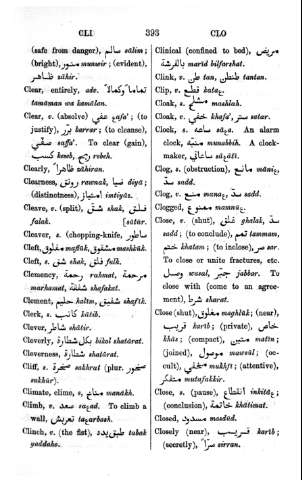 CLI 393 CLO
(safe from danger), سالم sālim;
(bright), منور munwir; (evident),
ظاهر zāhir.
Clear, entirely, adv. تماماً وكمالاً
tamāman wa kamālan.
Clear, v. (absolve) عفي (to
justify), برّر barrar; (to cleanse),
صفّى saffa'. To clear (gain),
كسب keseb, ربح rebeh.
Clearly, ظاهراً zāhiran.
Clearness, رونق rawnak, ضيا diyā;
(distinctness), امتياز imtiyās.
Cleave, v. (split), شق shak, فلق
falak. [sātūr.
Cleaver, s. (chopping-knife), ساطور
Cleft, مفلوق maflūk, مشقوق mashkūk.
Cleft, s. شق shak, فلق felk.
Clemency, رحمة rahmat, مرحمة
marhamat, شفقة shafakat.
Clement, حليم halīm, شفيق shafīk.
Clerk, s. كاتب kātib.
Clever, شاطر shātir.
Cleverly, بكل شطارة bikul shatārat.
Cleverness, شطارة shatārat.
Cliff, s. صخرة sakhrat (plur. صخور
sukhūr).
Climate, clime, s. مناخ manākh.
Climb, v. صعد To climb a
wall, تعربش
Clinch, v. (the fist), طبق يده tabak
yeddahu.
Clinical (confined to bed), مريض
بالفرشة marīd bilfarshat.
Clink, v. طن tan, طنطن tantan.
Clip, v. قطع
Cloak, s. مشلح mashlah.
Cloak, v. خفي khafa', ستر satar.
Clock, s. ساعة An alarm
clock, منبه munabbih. A clock-
maker, ساعاتي
Clog, s. (obstruction), مانع
سد sadd.
Clog, v. منع سد sadd.
Clogged, ممنوع
Close, v. (shut), غلق ghalak, سد
sadd; (to conclude), تمم tammam,
ختم khatam; (to inclose), صر sor.
To close or unite fractures, etc.
وصل wasal, جبّر jabbar. To
close with (come to an agree-
ment), شرط sharat.
Close (shut), مغلوق maghlūk; (near),
قريب karīb; (private), خاص
khās; (compact), متين matīn;
(joined), موصول mawsūl; (oc-
cult), مخفي mukhfi; (attentive),
متفكر mutafakkir.
Close, s. (pause), انقطاع
(conclusion), خاتمة khātimat.
Closed, مسدود masdūd.
Closely (near), قريب karīb;
(secretly), سراً sirran.